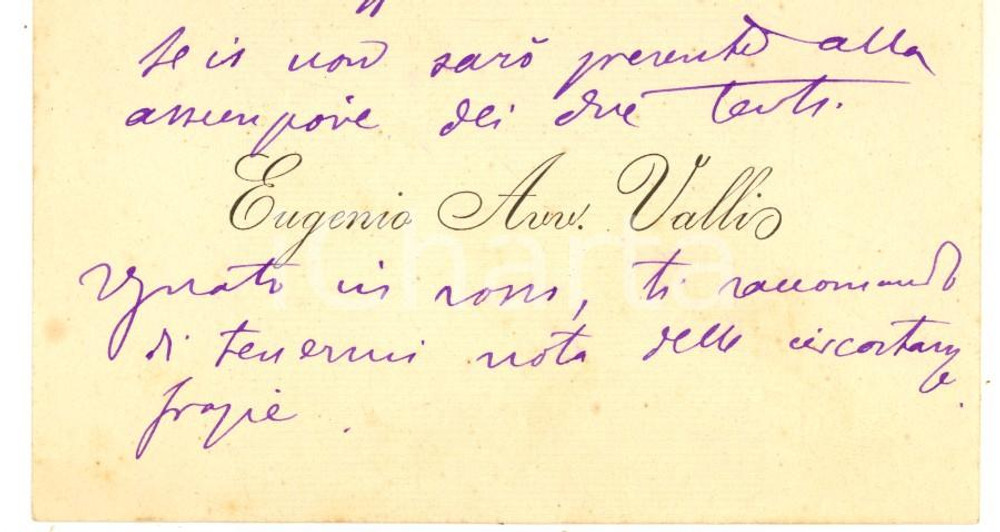 Se io non sarò presente alla
assunzione dei due testi.
Eugenio Avv. Vallis
segnato in rosso, ti raccomando
di tenermi nota delle circostanze.
grazie.